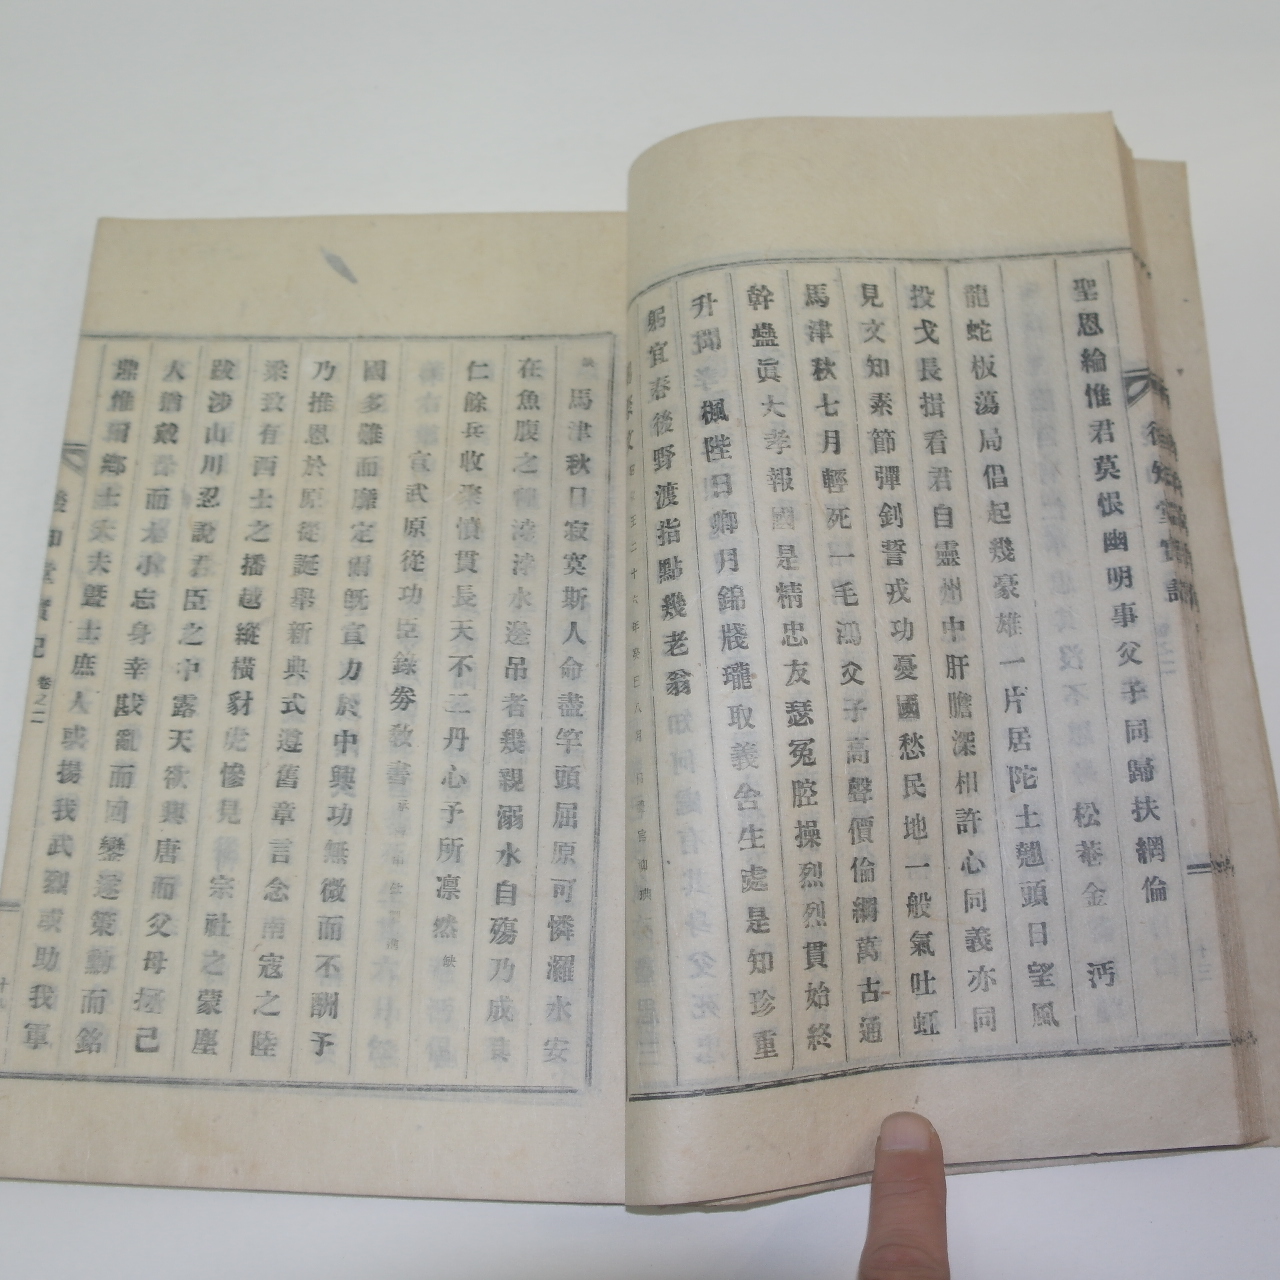 聖恩綸惟君莫恨幽明事父子同歸扶綱倫
松菴金 沔
龍蛇板蕩局倡起幾豪雄一片居陀土翹頭日望風
投戈長揖看君自靈州中肝膽深相許心同義亦同
見文知素節彈釗誓戎功憂國愁民地一般氣吐虹
馬津秋七月輕死一毛鴻父子高聲價倫綱萬古通
幹蠱眞大孝報國是精忠友瑟冤腔操烈烈貫始終
升聞 楓陛日鄕月錦牋瓏取義舍生處是知珍重
躬宜春後野渡指點幾老翁
馬津秋日寂寞斯人命盡竿頭屈原可憐濯水安
在魚腹之 淒淒水邊吊者幾親溺水自殤乃成
仁餘兵收 憤貫長天不二丹心予所凛然缺
宣武原從功臣錄券敎書
國多難而靡定爾旣宣力於中興功無微而不酬予
乃推恩於原從誕擧新典式遵舊章言念南寇之陸
梁致有西土之播越縱橫豺虎慘見 宗社之蒙塵
跋涉山川忍說君臣之中露天欲興唐而父母拯己
人猶戴 而 忘身幸戡亂而回鑾遂策勳而銘
鼎惟爾鄕士大夫曁士庶人或揚我武烈或助我軍
後知堂實記 卷之二
後知堂實記